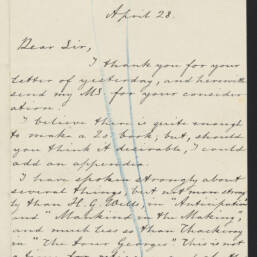 April 28.
Dear Sir,
I thank you for your
letter of yesterday, and herewith
send my MS. for your consider
ation.
I believe there is quite enough
to make a 2s book, but, should
you think it desirable, I could
add an appendix.
I have spoken strongly about
several things, but not more strong
ly than H. G. Wells, in "Anticipations"
and "Mankind in the Making",
and much less so than Thackeray
in "The Four Georges". This is not